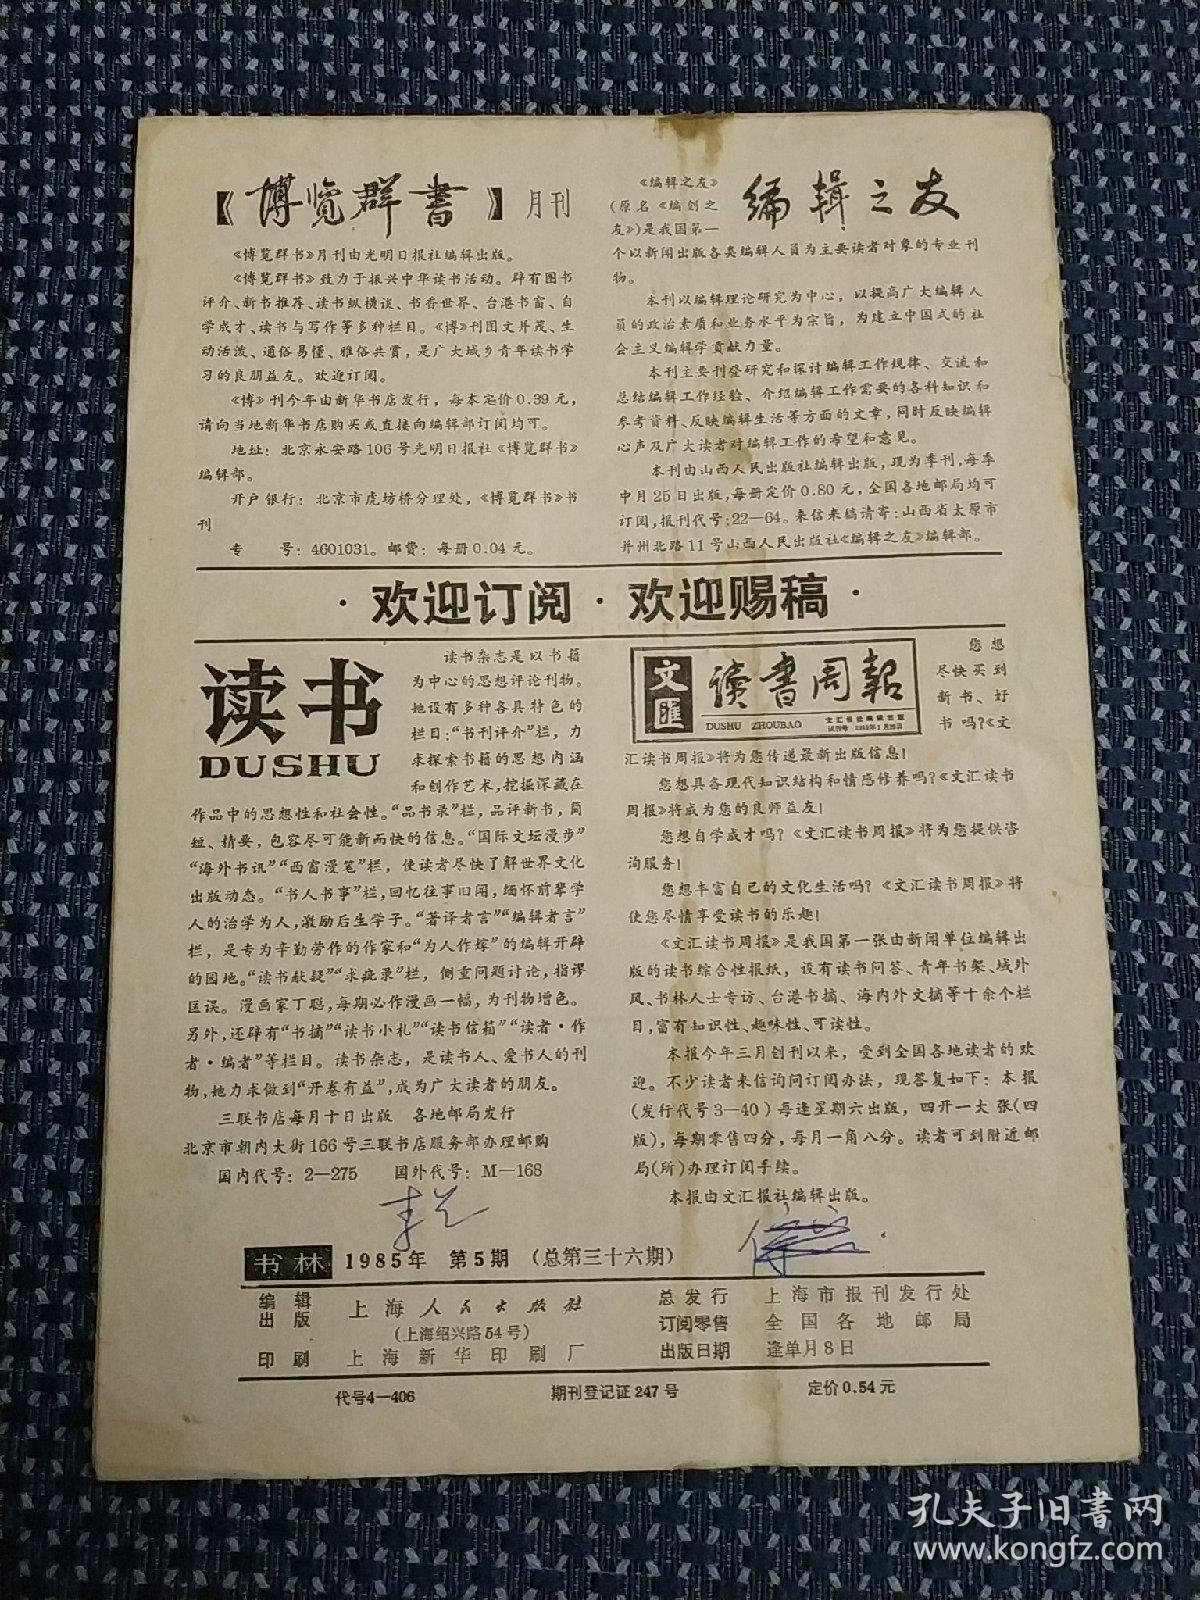 《博览群書》月刊
《博览群书》月刊由光明日报社编辑出版。
《博览群书》致力于振兴中华读书活动。辟有图书
评介、新书推荐、读书纵横谈、书香世界、台港书窗、自
学成才、读书与写作等多种栏目。《博》刊图文并茂、生
动活泼、通俗易懂、雅俗共赏，是广大城乡青年读书学
习的良朋益友。欢迎订阅。
《博》刊今年由新华书店发行，每本定价0.39元，
请向当地新华书店购买或直接向编辑部订阅均可。
地址：北京永安路106号光明日报社《博览群书》
编辑部。
开户银行：北京市虎坊桥分理处，《博览群书》书
刊
专　号：4601031。邮费：每册0.04元。
编辑之友
《编辑之友》
(原名《编创之
友》)是我国第一
个以新闻出版各类编辑人员为主要读者对象的专业刊
物。
本刊以编辑理论研究为中心，以提高广大编辑人
员的政治素质和业务水平为宗旨，为建立中国式的社
会主义编辑学贡献力量。
本刊主要刊登研究和探讨编辑工作规律、交流和
总结编辑工作经验、介绍编辑工作需要的各科知识和
参考资料、反映编辑生活等方面的文章，同时反映编辑
心声及广大读者对编辑工作的希望和意见。
本刊由山西人民出版社编辑出版，现为季刊，每季
中月25日出版，每册定价0.80元，全国各地邮局均可
订阅，报刊代号：22—64。来信来稿请寄：山西省太原市
并州北路11号山西人民出版社《编辑之友》编辑部。
·欢迎订阅·欢迎赐稿·
读书
DUSHU
读书杂志是以书籍
为中心的思想评论刊物。
她设有多种各具特色的
栏目：“书刊评介”栏，力
求探索书籍的思想内涵
和创作艺术，挖掘深藏在
作品中的思想性和社会性。“品书录”栏，品评新书，简
短、精要，包容尽可能新而快的信息。“国际文坛漫步”
“海外书讯”“西窗漫笔”栏，使读者尽快了解世界文化
出版动态。“书人书事”栏，回忆往事旧闻，缅怀前辈学
人的治学为人，激励后生学子。“著译者言”“编辑者言”
栏，是专为辛勤劳作的作家和“为人作嫁”的编辑开辟
的园地。“读书献疑”“求疵录”栏，侧重问题讨论，指谬
匡误。漫画家丁聪，每期必作漫画一幅，为刊物增色。
另外，还辟有“书摘”“读书小札”“读书信箱”“读者·作
者·编者”等栏目。读书杂志，是读书人、爱书人的刊
物，她力求做到“开卷有益”，成为广大读者的朋友。
三联书店每月十日出版　各地邮局发行
北京市朝内大街166号三联书店服务部办理邮购
国内代号：2—275　国外代号：M—168
文匯 讀書周報
DUSHU ZHOUBAO
您想
尽快买到
新书、好
书吗？《文
汇读书周报》将为您传递最新出版信息！
您想具备现代知识结构和情感修养吗？《文汇读书
周报》将成为您的良师益友！
您想自学成才吗？《文汇读书周报》将为您提供咨
询服务！
您想丰富自己的文化生活吗？《文汇读书周报》将
使您尽情享受读书的乐趣！
《文汇读书周报》是我国第一张由新闻单位编辑出
版的读书综合性报纸，设有读书问答、青年书架、域外
风、书林人士专访、台港书摘、海内外文摘等十余个栏
目，富有知识性、趣味性、可读性。
本报今年三月创刊以来，受到全国各地读者的欢
迎。不少读者来信询问订阅办法，现答复如下：本报
(发行代号3—40)每逢星期六出版，四开一大张(四
版)，每期零售四分，每月一角八分。读者可到附近邮
局(所)办理订阅手续。
本报由文汇报社编辑出版。
书林 1985年 第5期 (总第三十六期)
编辑
出版
上海人民出版社
(上海绍兴路54号)
印刷 上海新华印刷厂
总发行 上海市报刊发行处
订阅零售 全国各地邮局
出版日期 逢单月8日
代号4—406　期刊登记证247号　定价0.54元
孔夫子旧書网
www.kongfz.com